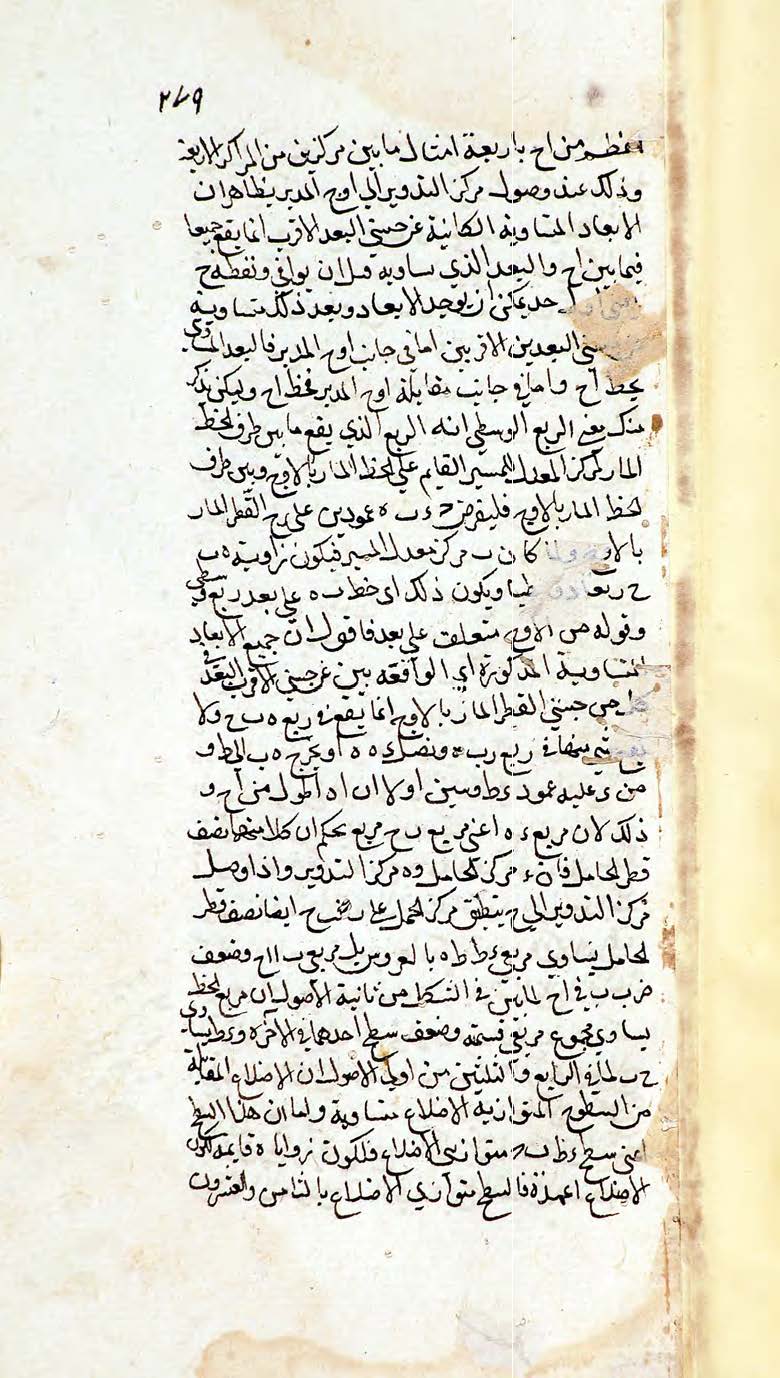 ٢٧٩
اعظم من اح باربعة امثال ما بين مركزين من المراكز الاربعة
وذلك عند وصول مركز التدوير الى اوج المدير يظاهر ان
الابعاد المتساوية الكائنة عن جنبتي البعد الاقرب انما يقع جميعا
فيما بين اح والبعد الذي يساويه قبل ان يوافي نقطة ح
حد يمكن ان يوجد الابعاد وبعد ذلك متساوية
جنبتي البعدين الاقربين اما في جانب اوج المدير فالبعد المساوي
بخط اح واما في جانب مقابلة اوج المدير فخط اح وليكن بذكر
منك معنى الربع الوسطي انه الربع الذي يقع ما بين طرف الخط
المار بمركز المعدل للمسير القايم على الخط المار بالاوج وبين طرف
الخط المار بالاوج فليفرض ء ب ه عمودين على رح القطر المار
بالاوج ولما كان ب مركز معدل المسير فيكون زاوية ه ب
ح ربعا وسطيا ويكون ذلك اي خط ب ه على بعد ربع وسطي
وقوله من الاوج متعلق على بعد فاقول ان جميع الابعاد
المتساوية المذكورة اي الواقعة بين عن جنبتي الاقرب البعد في
من جنبتي القطر المار بالاوج انما يقع في ربع ه ب ح ولا
يقع شي منها في ربع ر ب ه ونصل ء ه ا ه ويخرج ه ب الى ط و
من ء عليه عمود ء ط وبين اولا ان ا ه اطول من اح و
ذلك لان مربع ء ه اعني مربع ب ح مربع بحكم ان كلا منهما نصف
قطر الحامل فان ء مركز الحامل و ه مركز التدوير واذا وصل
مركز التدوير الى ح ينطبق مركز الحامل على ب فب ح ايضا نصف قطر
الحامل يساوي مربعي ء ط ط ه بالعروس بل مربعي ب ا اح وضعف
ضرب ب ا في اح لما تبين في الشكل من ثانية الاصول ان مربع الخط
يساوي مجموع مربعي قسميه وضعف سطح احدهما في الآخر ه و ء ط يساوي
ح ب لما في الرابع والثلثين من اولى الاصول ان الاضلاع المقابلة
من السطوح المتوازية الاضلاع متساوية ولما ان هذا السطح
اعني سطح ء ط ب ح متوازي الاضلاع فلكون زوايا ه قايمة لكون
الاضلاع اعمدة فالسطح متوازي الاضلاع بالثامن والعشرين